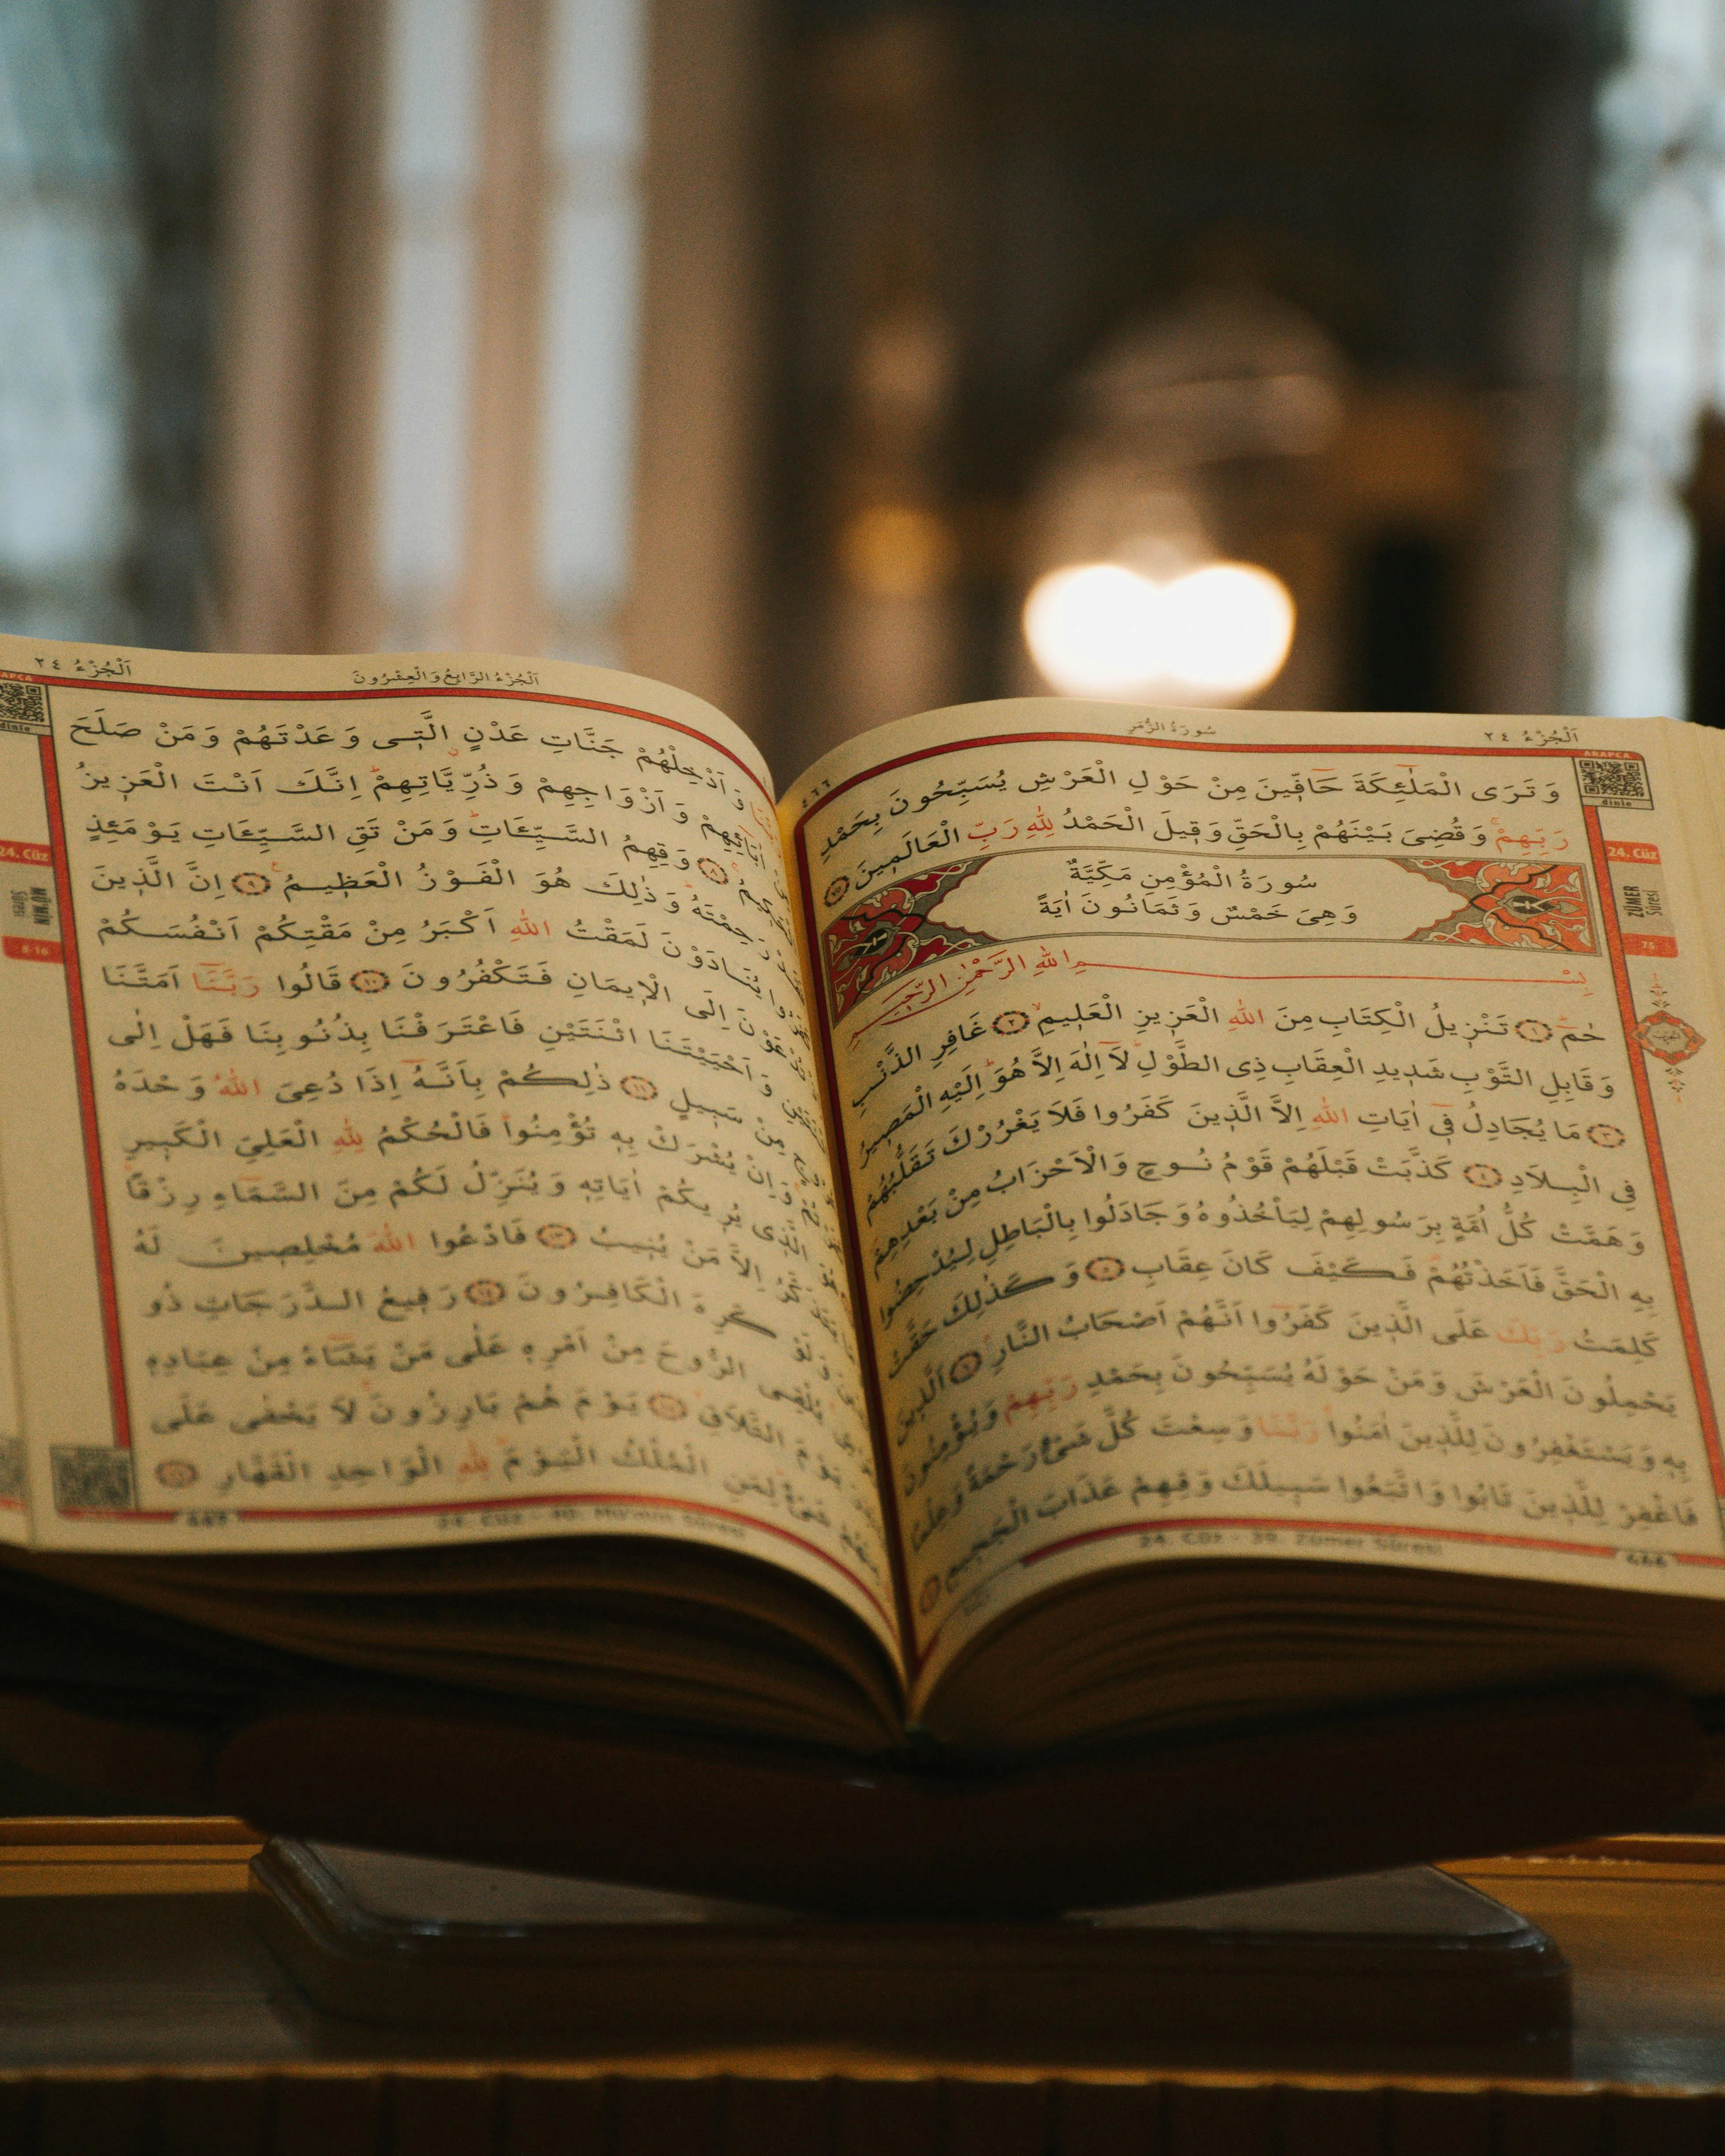 سُورَةُ الزُّمَرِ
اَلْجُزْءُ ٢٤
٤٦٦
ARAPCA
dinle
وَتَرَى الْمَلٰٓئِكَةَ حَٓافّ۪ينَ مِنْ حَوْلِ الْعَرْشِ يُسَبِّحُونَ بِحَمْدِ
رَبِّهِمْۚ وَقُضِىَ بَيْنَهُمْ بِالْحَقِّ وَق۪يلَ الْحَمْدُ لِلّٰهِ رَبِّ الْعَالَم۪ينَ ﴿٧٥﴾
24. Cüz
ZÜMER
Sûresi
75
سُورَةُ الْمُؤْمِنِ مَكِّيَّةٌ
وَهِىَ خَمْسٌ وَثَمَانُونَ اٰيَةً
بِسْمِ اللّٰهِ الرَّحْمٰنِ الرَّح۪يمِ
حٰمٓ ﴿١﴾ تَنْز۪يلُ الْكِتَابِ مِنَ اللّٰهِ الْعَز۪يزِ الْعَل۪يمِۙ ﴿٢﴾ غَافِرِ الذَّنْبِ
وَقَابِلِ التَّوْبِ شَد۪يدِ الْعِقَابِ ذِى الطَّوْلِۜ لَٓا اِلٰهَ اِلَّا هُوَۜ اِلَيْهِ الْمَص۪يرُ
﴿٣﴾ مَا يُجَادِلُ ف۪ٓى اٰيَاتِ اللّٰهِ اِلَّا الَّذ۪ينَ كَفَرُوا فَلَا يَغْرُرْكَ تَقَلُّبُهُمْ
فِى الْبِلَادِ ﴿٤﴾ كَذَّبَتْ قَبْلَهُمْ قَوْمُ نُوحٍ وَالْاَحْزَابُ مِنْ بَعْدِهِمْ
وَهَمَّتْ كُلُّ اُمَّةٍ بِرَسُولِهِمْ لِيَأْخُذُوهُ وَجَادَلُوا بِالْبَاطِلِ لِيُدْحِضُوا
بِهِ الْحَقَّ فَاَخَذْتُهُمْ فَكَيْفَ كَانَ عِقَابِ ﴿٥﴾ وَكَذٰلِكَ حَقَّتْ
كَلِمَتُ رَبِّكَ عَلَى الَّذ۪ينَ كَفَرُٓوا اَنَّهُمْ اَصْحَابُ النَّارِۢ ﴿٦﴾ اَلَّذ۪ينَ
يَحْمِلُونَ الْعَرْشَ وَمَنْ حَوْلَهُ يُسَبِّحُونَ بِحَمْدِ رَبِّهِمْ وَيُؤْمِنُونَ
بِه۪ وَيَسْتَغْفِرُونَ لِلَّذ۪ينَ اٰمَنُواۚ رَبَّنَا وَسِعْتَ كُلَّ شَىْءٍ رَحْمَةً وَعِلْمًا
فَاغْفِرْ لِلَّذ۪ينَ تَابُوا وَاتَّبَعُوا سَب۪يلَكَ وَقِهِمْ عَذَابَ الْجَح۪يمِ
24. Cüz - 39. Zümer Sûresi
466
اَلْجُزْءُ الرَّابِعُ وَالْعِشْرُونَ
اَلْجُزْءُ ٢٤
dinle
24. Cüz
MÜ'MİN
Sûresi
8-16
وَاَدْخِلْهُمْ جَنَّاتِ عَدْنٍ الَّت۪ى وَعَدْتَهُمْ وَمَنْ صَلَحَ
وَاَزْوَاجِهِمْ وَذُرِّيَّاتِهِمْۜ اِنَّكَ اَنْتَ الْعَز۪يزُ
﴿٨﴾ وَقِهِمُ السَّيِّـَٔاتِۜ وَمَنْ تَقِ السَّيِّـَٔاتِ يَوْمَئِذٍ
وَذٰلِكَ هُوَ الْفَوْزُ الْعَظ۪يمُ۟ ﴿٩﴾ اِنَّ الَّذ۪ينَ
يُنَادَوْنَ لَمَقْتُ اللّٰهِ اَكْبَرُ مِنْ مَقْتِكُمْ اَنْفُسَكُمْ
اِلَى الْا۪يمَانِ فَتَكْفُرُونَ ﴿١٠﴾ قَالُوا رَبَّنَٓا اَمَتَّنَا
وَاَحْيَيْتَنَا اثْنَتَيْنِ فَاعْتَرَفْنَا بِذُنُوبِنَا فَهَلْ اِلٰى
مِنْ سَب۪يلٍ ﴿١١﴾ ذٰلِكُمْ بِاَنَّهُٓ اِذَا دُعِىَ اللّٰهُ وَحْدَهُ
وَاِنْ يُشْرَكْ بِه۪ تُؤْمِنُواۜ فَالْحُكْمُ لِلّٰهِ الْعَلِىِّ الْكَب۪يرِ
الَّذ۪ى يُر۪يكُمْ اٰيَاتِه۪ وَيُنَزِّلُ لَكُمْ مِنَ السَّمَٓاءِ رِزْقًاۜ
اِلَّا مَنْ يُن۪يبُ ﴿١٣﴾ فَادْعُوا اللّٰهَ مُخْلِص۪ينَ لَهُ
كَرِهَ الْكَافِرُونَ ﴿١٤﴾ رَف۪يعُ الدَّرَجَاتِ ذُو
يُلْقِى الرُّوحَ مِنْ اَمْرِه۪ عَلٰى مَنْ يَشَٓاءُ مِنْ عِبَادِه۪
يَوْمَ التَّلَاقِۙ ﴿١٥﴾ يَوْمَ هُمْ بَارِزُونَۚ لَا يَخْفٰى عَلَى
لِمَنِ الْمُلْكُ الْيَوْمَۜ لِلّٰهِ الْوَاحِدِ الْقَهَّارِ ﴿١٦﴾
24. Cüz - 40. Mü'min Sûresi